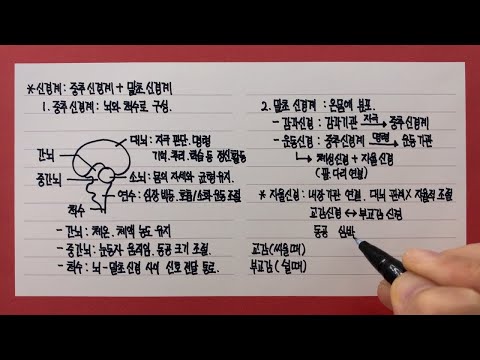 *신경계 : 중추 신경계 + 말초 신경계
1. 중추 신경계 : 뇌와 척수로 구성.
대뇌 : 자극 판단. 명령
기억·추리·학습 등 정신활동
간뇌
중간뇌
소뇌 : 몸의 자세와 균형 유지.
연수 : 심장 박동, 호흡/소화 운동 조절
척수
- 간뇌 : 체온. 체액 농도 유지
- 중간뇌 : 눈동자 움직임. 동공 크기 조절.
- 척수 : 뇌 - 말초 신경 사이 신호 전달 통로.
2. 말초 신경계 : 온몸에 분포.
- 감각신경 : 감각기관 자극→ 중추신경계
- 운동신경 : 중추신경계 명령→ 운동 기관
↳ 체성신경 + 자율신경
(팔·다리 연결)
* 자율신경 : 내장기관 연결. 대뇌 관계X 자율적 조절
교감신경 ↔ 부교감 신경
동공 심박
교감(싸울 때)
부교감(쉴 때)